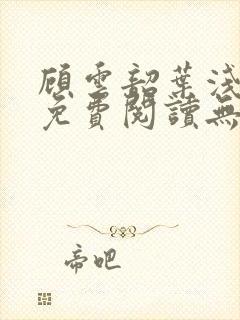 顧雲韶葉淺
免費閱讀無
帝吧